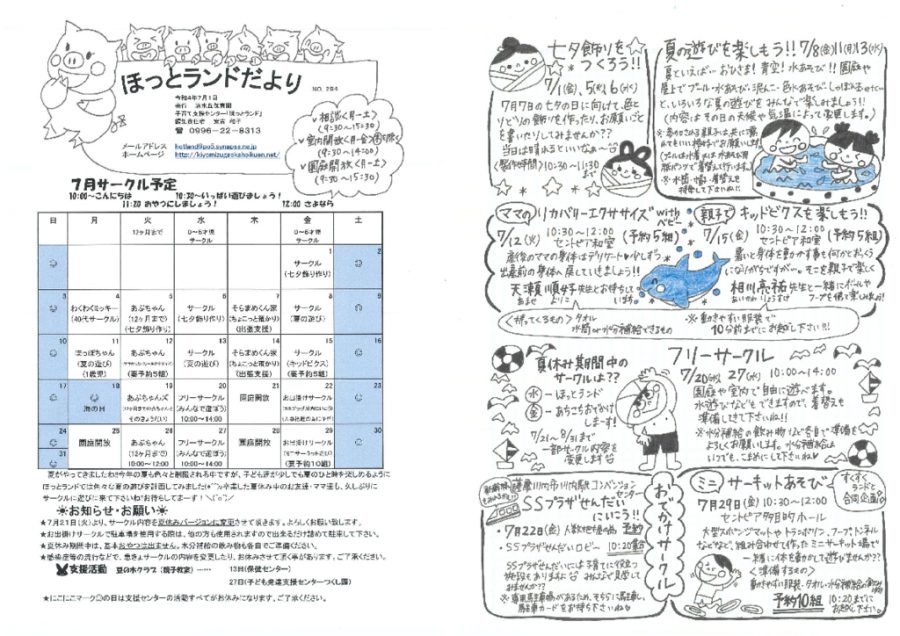 ほっとランドだより
NO. 284
令和4年7月1日
子育て支援センター「ほっとランド」
☎ 0996-22-8313
メールアドレス hotland@po5.synapse.ne.jp
ホームページ http://kiyomizugaokahoikuen.net/
・相談（月～土）
（9:30～15:30）
（9:30～14:00）
・園庭開放（月～土）
（9:30～15:30）
7月サークル予定
10:00～こんにちは 10:30～いっぱい遊びましょう！
11:20 おやつにしましょう！ 12:00 さよなら
日 月 火 水 木 金 土
12ヶ月まで 0～6才児 サークル 0～6才児 サークル
1 サークル （七夕飾り作り） 2
3
4 わくわくミッキー （40代サークル）
5 あぷちゃん （12ヶ月まで） （七夕飾り作り）
6 サークル （七夕飾り作り）
7 そらまめくん家 （ちょこっと預かり） （出張支援）
8 サークル （夏の遊び）
9
10
11 まっぽちゃん （夏の遊び） （1歳児）
12 あぷちゃん （要予約5組）
13 サークル （夏の遊び）
14 そらまめくん家 （ちょこっと預かり） （出張支援）
15 サークル （キッドビクス） （要予約5組）
16
17
18 海の日
19 あぷちゃんズ
20 フリーサークル （みんなで遊ぼう） 10:00～14:00
21 園庭開放
22 お出掛けサークル
23
24
25 園庭開放
26 あぷちゃん （12ヶ月まで） 10:00～12:00
27 フリーサークル （みんなで遊ぼう） 10:00～14:00
28 園庭開放
29 お出掛けサークル （要予約10組）
30
31
夏がやってきましたね!!今年の夏も色々と制限される年ですが、子ども達が少しでも夏のひと時を楽しめるように
ほっとランドでは色々な夏の遊びを計画していました
サークルに遊びに来て下さいね♡お待ちしてまーす！
☀お知らせ・お願い☀
★7月21日（火）より、サークル内容を夏休みバージョンに変更させて頂きます。よろしくお願い致します。
★お出掛けサークルで駐車場を使用する際は、他の方も使用されますので出来るだけ詰めて駐車して下さい。
★夏休み期間中は、基本おやつは出ません。水分補給の飲み物も各自でご準備ください。
★感染症等の流行などで、急きょサークルの内容を変更したり、お休みさせて頂く事があります。ご了承ください。
支援活動 夏の水クラブ（親子教室）…… 13日（保健センター）
27日（子ども発達支援センターつくし園）
★にこにこマーク☺の日は支援センターの活動すべてがお休みになります、ご了承ください。
七夕飾りを
つくろう!!
7/1(金)、5(火)、6(水)
7月7日の七夕の日に向けて、色と
りどりの飾りを作ったり、お願いごと
を書いたりしてみませんか??
当日は晴れるといいなぁ～
（製作時間）10:30～11:30まで
夏の遊びを楽しもう!! 7/8(金)11(月)13(水)
夏といえば…おひさま！青空！水あそび!! 園庭や
屋上でプール・水あそび・泥んこ・色水あそび・しゃぼん玉…etc
と、いろいろな夏の遊びをみんなで楽しみましょう!!
（内容はその日の天候や気温によって変更します。）
ママのリカバリーエクササイズ with ベビー
7/12(火) 10:30～12:00
セントピア和室（予約5組）
産後のママの身体はデリケート♡少しずつ
出産前の身体へ戻していきましょう!!
天瀬順子先生とお待ちして
います。
〈持ってくるもの〉タオル
水筒or水分補給できるもの
親子でキッドビクスを楽しもう!!
7/15(金) 10:30～12:00
セントピア和室（予約5組）
暑いと身体を動かす事も何かとおっくう
になりがちですが…。そこを親子で楽しく
相川亮祐先生と一緒にボールや
フープを使って楽しみましょう!!
※動きやすい服装で
10分前までにお越し下さい!!
夏休み期間中の
サークルは??
水－ほっとランド
金－あちこちおでかけ
しまーす！
7/21～8/31まで
一部サークル内容を
変更します
フリーサークル
7/20(水) 27(水) 10:00～14:00
園庭や室内で自由に遊べます。
水遊びなどもできますので、着替えを
準備してきて下さいね!!
※水分補給の飲み物など各自で準備を
よろしくお願いします。水分補給は
いつでも、こまめにして下さいね♡
薩摩川内市川内駅コンベンションセンター
SSプラザせんだい
にいこう!!
7/22(金)
・SSプラザせんだいロビー 10:20集合
SSプラザせんだいには子育てに役立つ
施設もあります みんなで見学して
みませんか??
※専用駐車場があるため、そちらに駐車し、
駐車カードをお持ち下さいね♡
おでかけサークル
ミニサーキットあそび
すくすくランドと合同企画
7月29日(金) 10:30～12:00
セントピア多目的ホール
大型スポンジマットやトランポリン、フープトンネル
などなど、組み合わせて作ったミニサーキット場で
一緒に体を動かして遊びませんか??
〈準備するもの〉
動きやすい服装・タオル・水分補給の飲み物
予約10組 10:20までに
お越し下さい。